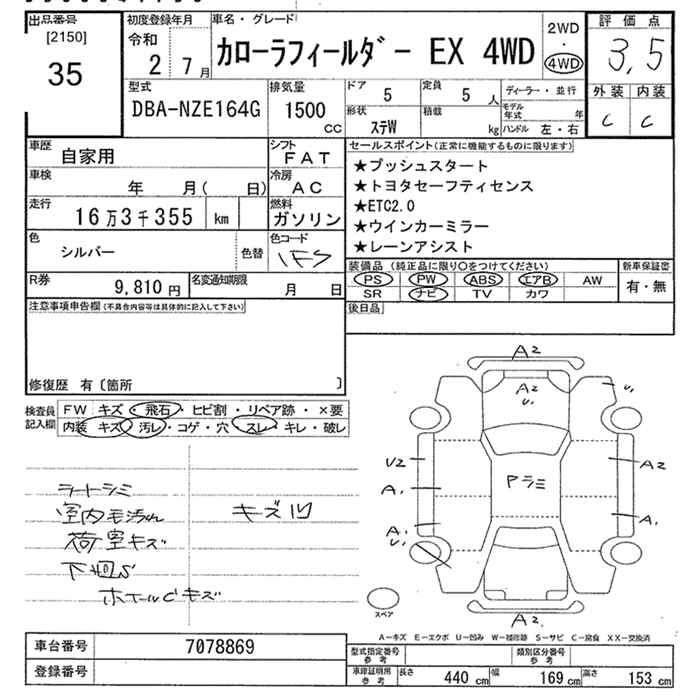 出品番号
[2150]
35
初度登録年月
令和
2 7月
車名・グレード
カローラフィールダー EX 4WD
2WD
・
4WD
評価点
3,5
外装 内装
C C
型式
DBA-NZE164G
排気量
1500
CC
ドア
5
定員
5人
形状
ステW
積載
kg
ディーラー・並行
モデル年式 年
ハンドル 左・右
車歴
自家用
シフト
FAT
車検
年 月( 日)
冷房
AC
走行
16万3千355 km
燃料
ガソリン
色
シルバー
色替
色コード
1F5
R券
9,810円
名変通知期限
月 日
セールスポイント(正常に機能するものに限ります)
★プッシュスタート
★トヨタセーフティセンス
★ETC2.0
★ウインカーミラー
★レーンアシスト
装備品(純正品に限り○をつけてください)
PS PW ABS エアB AW
SR ナビ TV カワ
新車保証書
有・無
後日品
注意事項申告欄(不具合内容等は具体的に記入して下さい)
修復歴 有〔箇所 〕
検査員
記入欄
FW キズ・飛石・ヒビ割・リペア跡・×要
内装 キズ・汚レ・コゲ・穴・スレ・キレ・破レ
ラートシミ
室内毛汚れ
荷室キズ
下回S
ホイールCキズ
キズ凹
A2
A2
U1
U1
U2
A1
A1
U1
Pラミ
A2
A1
A2
スペア
A-キズ E-エクボ U-凹み W-補修跡 S-サビ C-腐食 XX-交換済
車台番号
7078869
登録番号
型式指定番号
参考
類別区分番号
参考
車庫証明用
参考
長さ 440 cm
幅 169 cm
高さ 153 cm